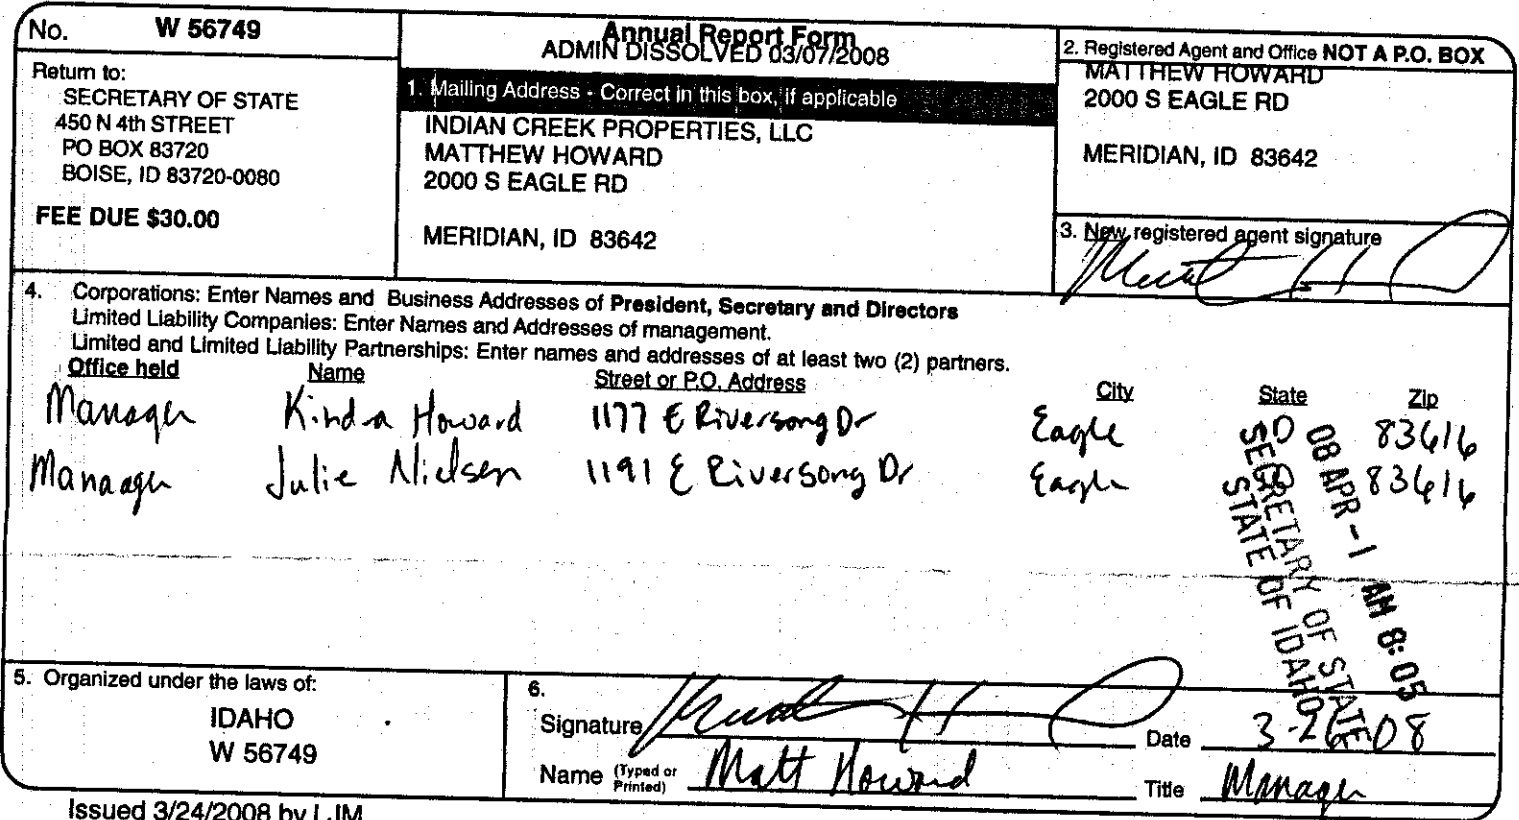 No. W 56749
Return to:
SECRETARY OF STATE
450 N 4th STREET
PO BOX 83720
BOISE, ID 83720-0080
FEE DUE $30.00
Annual Report Form
ADMIN DISSOLVED 03/07/2008
1. Mailing Address - Correct in this box, if applicable
INDIAN CREEK PROPERTIES, LLC
MATTHEW HOWARD
2000 S EAGLE RD
MERIDIAN, ID 83642
2. Registered Agent and Office NOT A P.O. BOX
MATTHEW HOWARD
2000 S EAGLE RD
MERIDIAN, ID 83642
3. New registered agent signature
4. Corporations: Enter Names and Business Addresses of President, Secretary and Directors
Limited Liability Companies: Enter Names and Addresses of management.
Limited and Limited Liability Partnerships: Enter names and addresses of at least two (2) partners.
Office held Name Street or P.O. Address City State Zip
Manager Kindra Howard 1177 E Riversong Dr Eagle ID 83616
Manager Julie Nielsen 1191 E Riversong Dr Eagle 83616
08 APR -1 AM 8:05
SECRETARY OF STATE
STATE OF IDAHO
5. Organized under the laws of:
IDAHO
W 56749
6.
Signature Date 3-26-08
Name (Typed or Printed) Matt Howard Title Manager
Issued 3/24/2008 by LJM